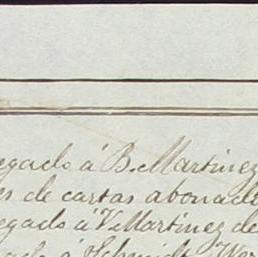 egado á B. Martinez
es de cartas abonad
egado á V. Martinez de
ado á Schmidt